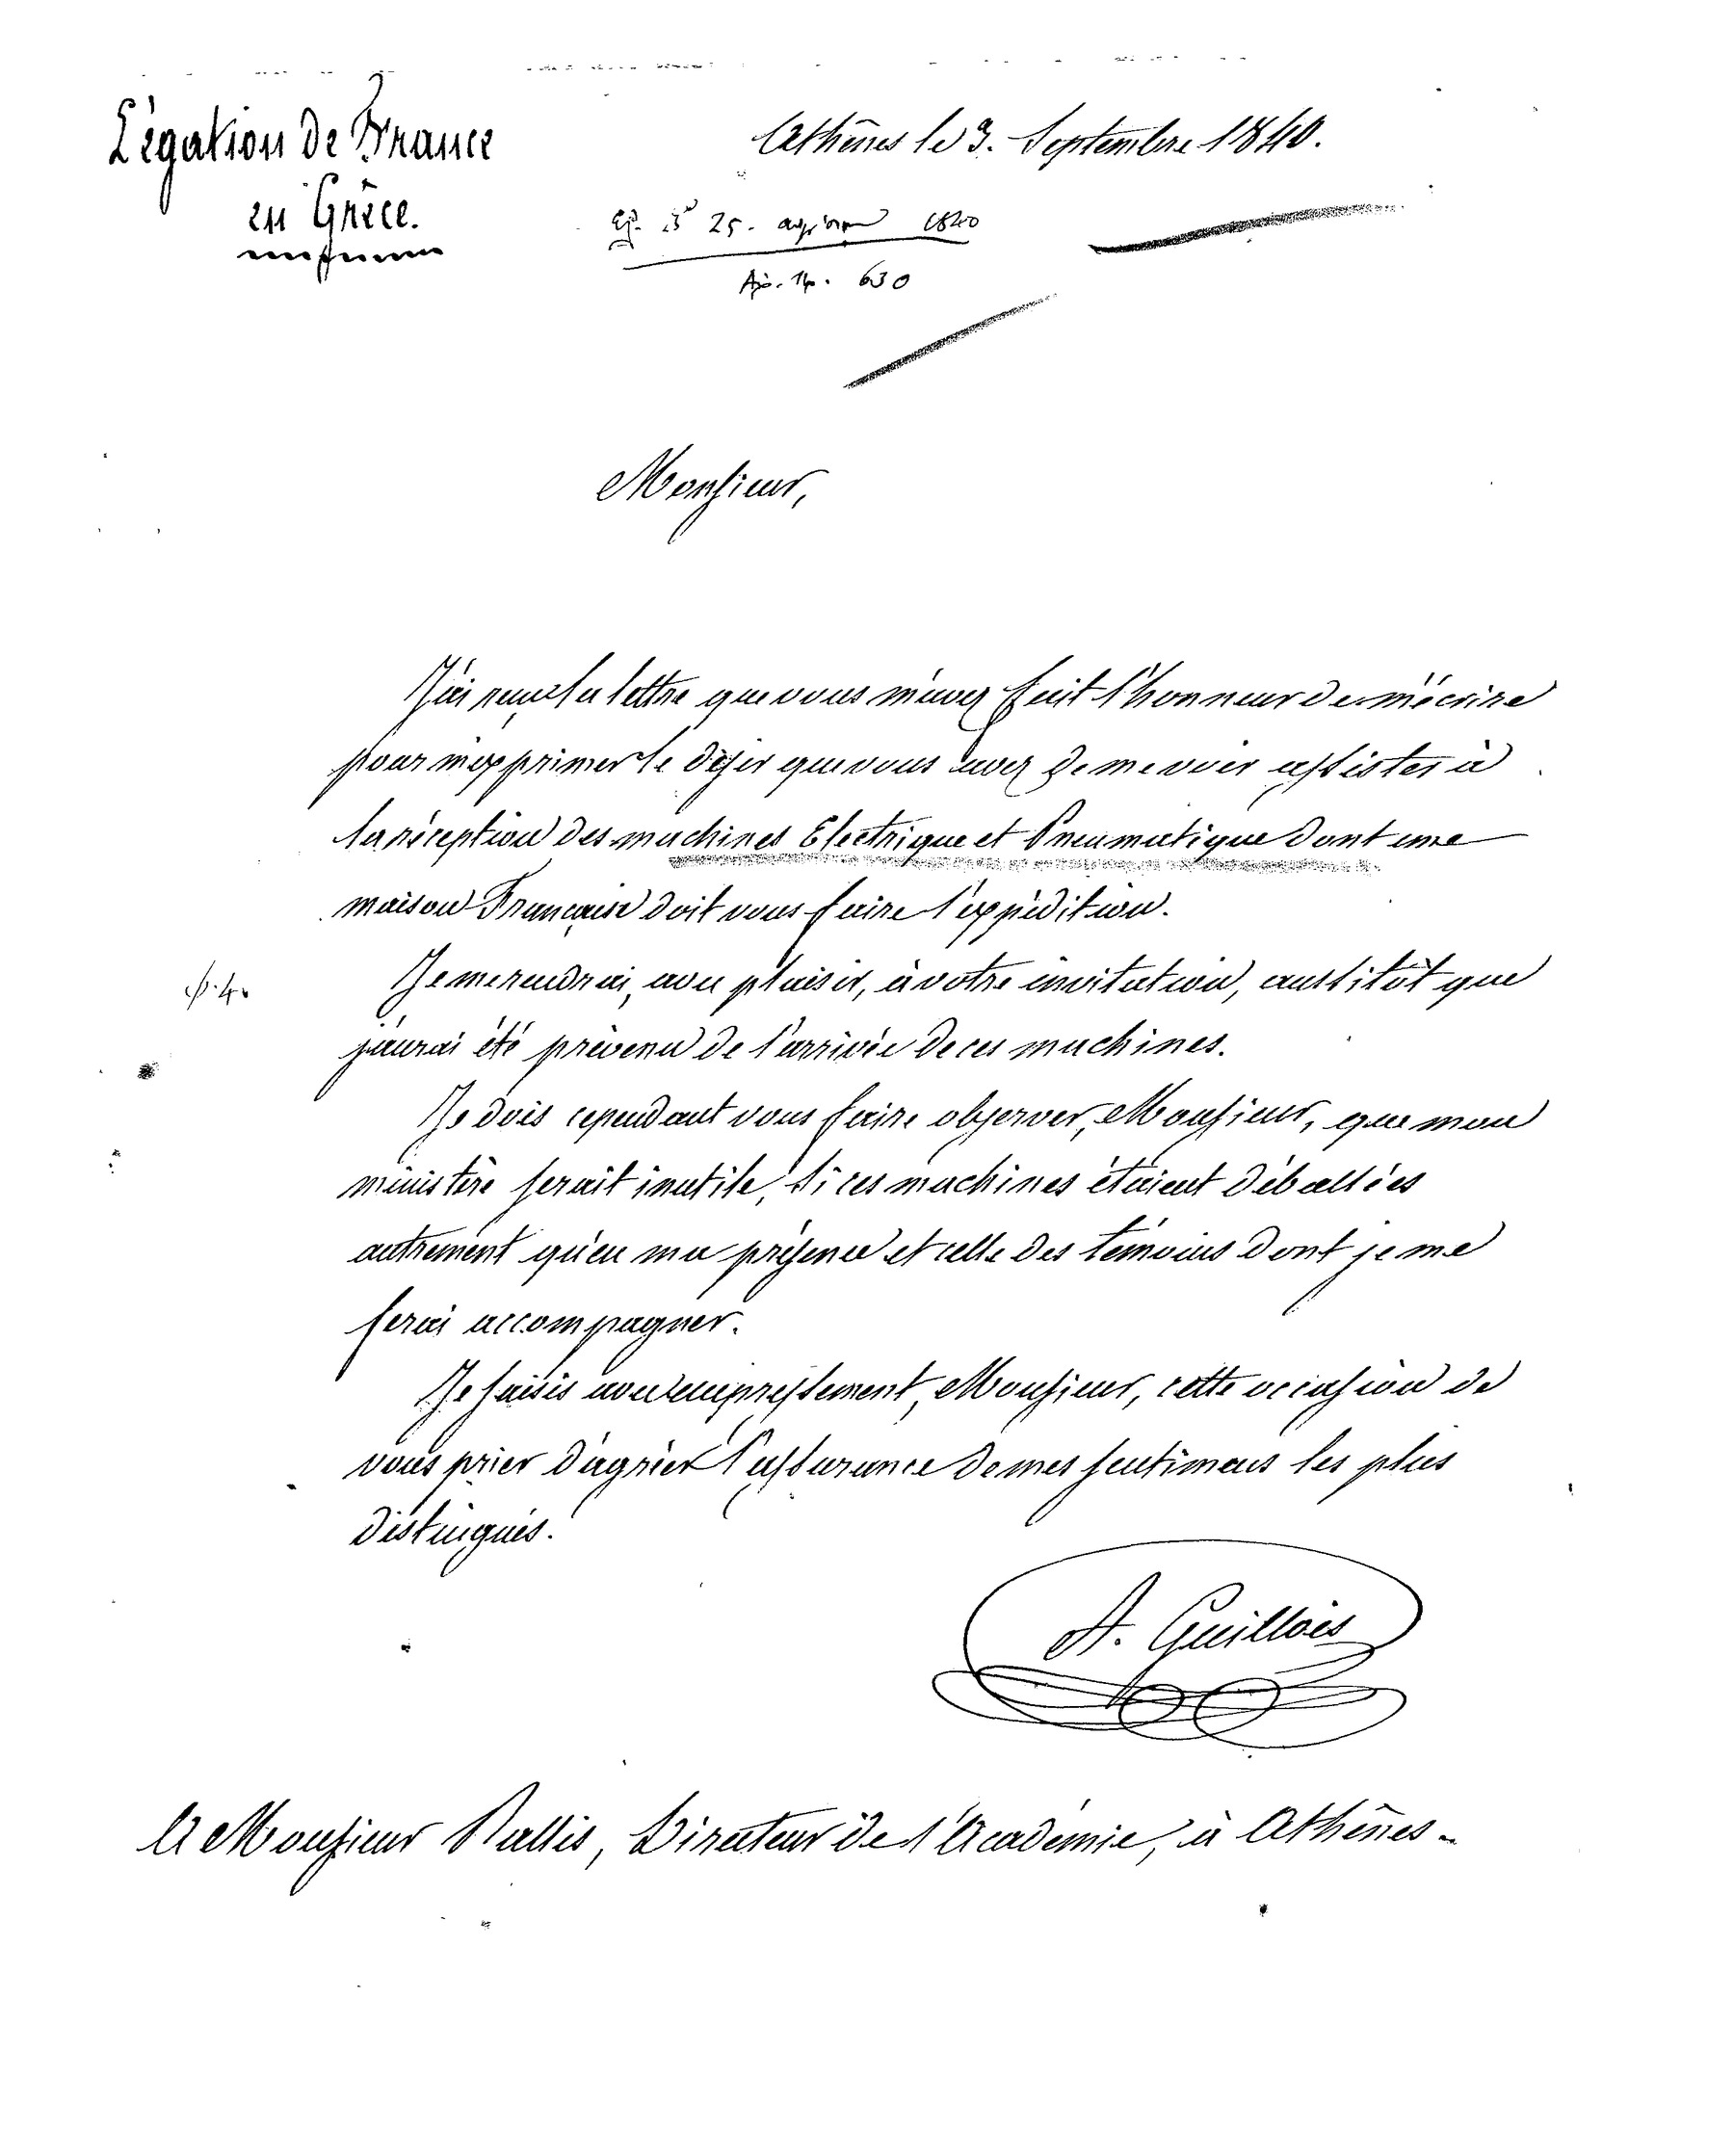 Légation de France
en Grèce.
Athènes le 3. Septembre 1840.
25. 1840
630
Monsieur,
J'ai reçu la lettre que vous m'avez fait l'honneur de m'écrire
pour m'exprimer le désir que vous avez de me voir assister à
la réception des machines Electrique et Pneumatique dont une
maison Française doit vous faire l'expédition.
Je me rendrai, avec plaisir, à votre invitation, aussitôt que
j'aurai été prévenu de l'arrivée de ces machines.
Je dois cependant vous faire observer, Monsieur, que mon
ministère serait inutile, si ces machines étaient déballées
autrement qu'en ma présence et celle des témoins dont je me
ferai accompagner.
Je saisis avec empressement, Monsieur, cette occasion de
vous prier d'agréer l'assurance de mes sentimens les plus
distingués.
A. Guillois
A Monsieur Rallis, Directeur de l'Académie, à Athènes -